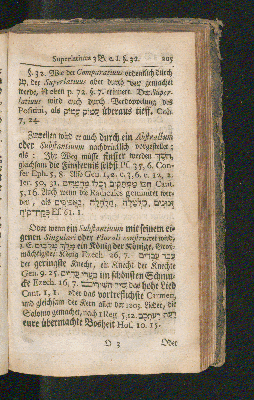 Superlativus 3 B. c. I. §. 32. 205
§. 32. Wie der Comparativus ordentlich durch
מן, der Superlativus aber durch das gemachet
werde, haben p. 72. §. 7. erinnert. Der Super-
lativus wird auch durch Verdoppelung des
Positivi, als עמק עמק überaus tieff. Coh.
7, 24.
Zuweilen wird er auch durch ein Abstractum
oder Substantivum nachdrücklich vorgestellet;
als: Ihr Weg müsse finster werden חשך,
gleichsam die Finsterniß selbst Ps. 35, 6. Con-
fer Eph. 5, 8. Also Gen. 1, 2. c. 3, 6. c. 12, 2.
Jer. 50, 31. מחמדים וכלו ממתקים חכו Cant.
5, 16. Auch wenn die Radicales gemehret wer-
den, als באפסים,
Ef 61. 1.
Oder wenn ein Substantivum mit seinem ei-
genen Singulari oder Plurali construiret wird:
z. E. מלך מלכים ein König der Könige, Groß-
mächtigster König Ezech. 26, 7. עבד עבדים
der geringste Knecht, ein Knecht der Knechte
Gen. 9. 25. בעדי עדיים im schönsten Schmu-
cke Ezech. 16, 7. שיר השירים das hohe Lied
Cant. 1, 1. oder das vortreflichste Carmen,
und gleichsam der Kern aller der 1005. Lieder, die
Salomo gemachet, nach 1 Reg. 5, 12. רעת רעתכם
eure übermachte Bosheit Hos. 10. 15.
O 3 Oder